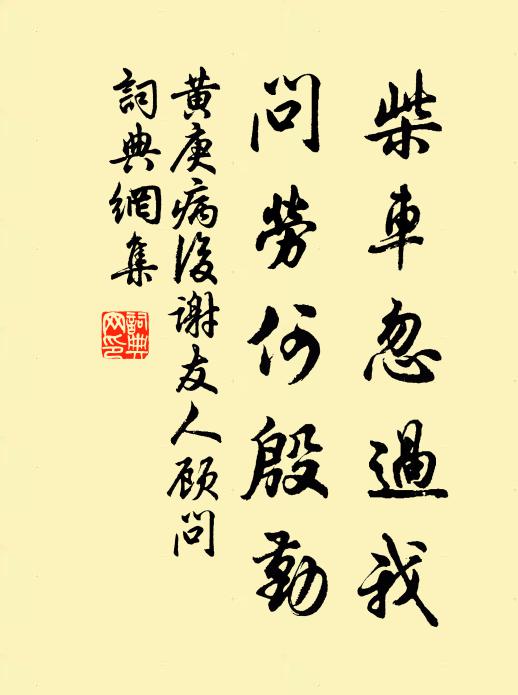 柴車忽過我
問勞何殷勤
黄庚病後谢友人顾問
詞典網集
詞典网印